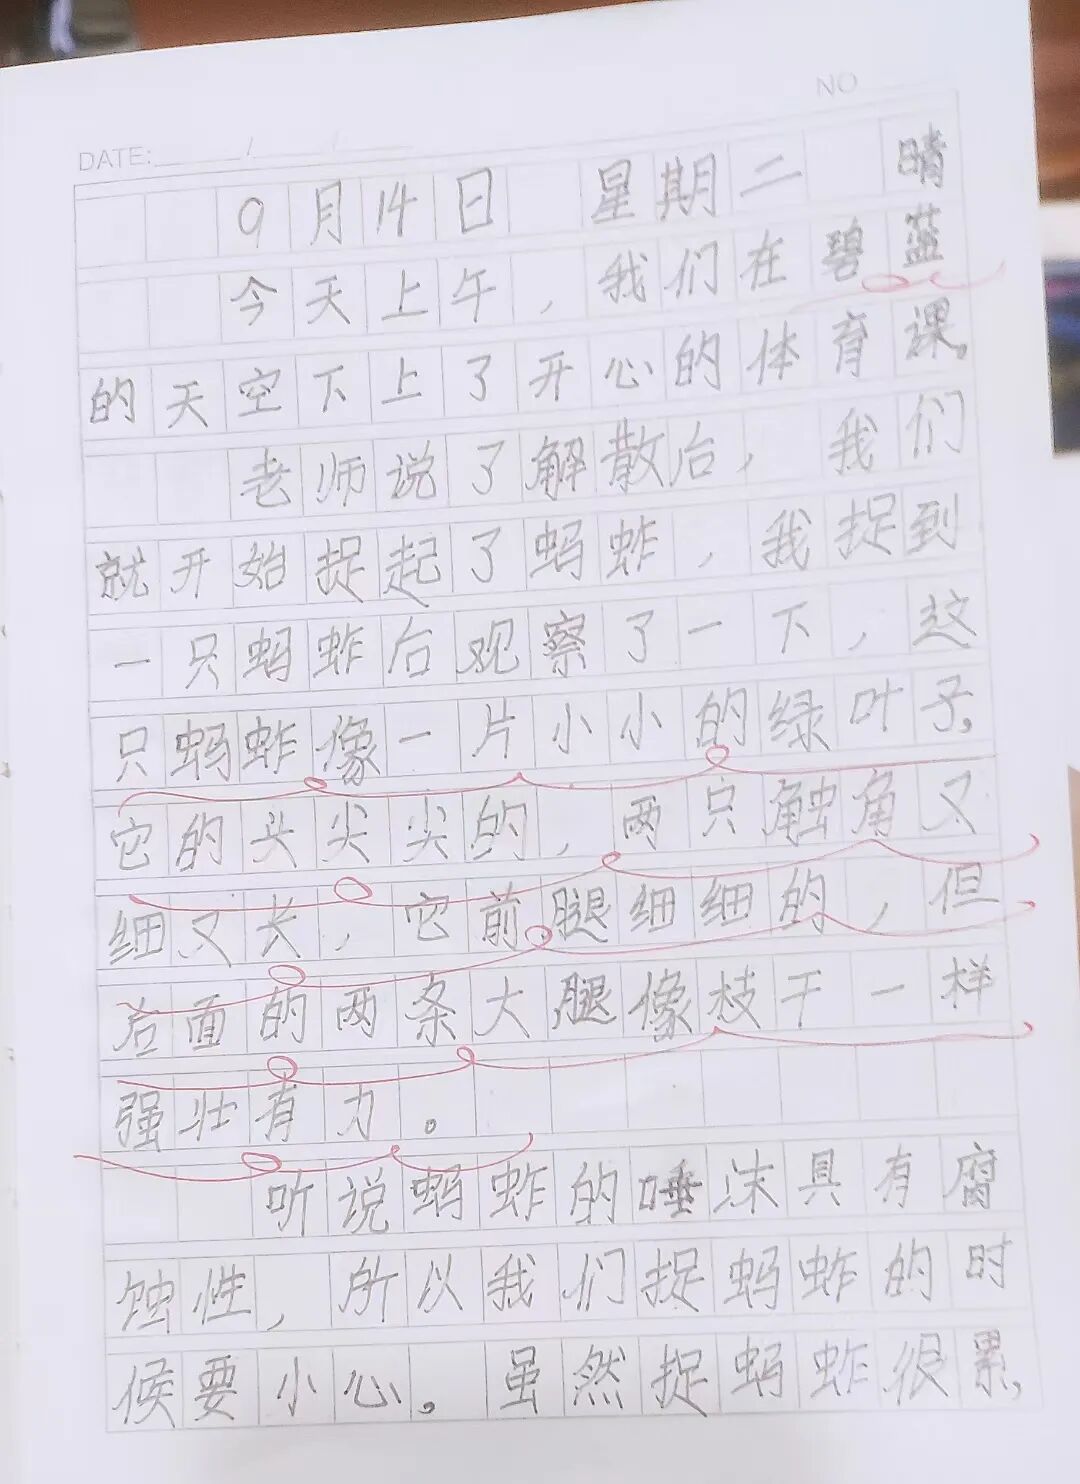 NO
DATE: / /
9月14日 星期二 晴
今天上午，我们在碧蓝
的天空下上了开心的体育课，
老师说了解散后，我们
就开始捉起了蚂蚱，我捉到
一只蚂蚱后观察了一下，这
只蚂蚱像一片小小的绿叶子，
它的头尖尖的，两只触角又
细又长，它前腿细细的，但
后面的两条大腿像枝干一样
强壮有力。
听说蚂蚱的唾沫具有腐
蚀性，所以我们捉蚂蚱的时
候要小心。虽然捉蚂蚱很累，